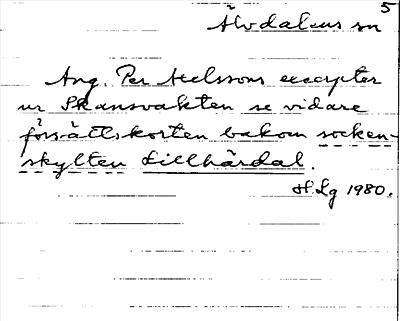 5
Älvdalens sn
Ang. Per Nelssons excerpter
ur Skansvakten se vidare
försättskorten bakom socken-
skylten Lillhärdal.
H.Lg 1980.